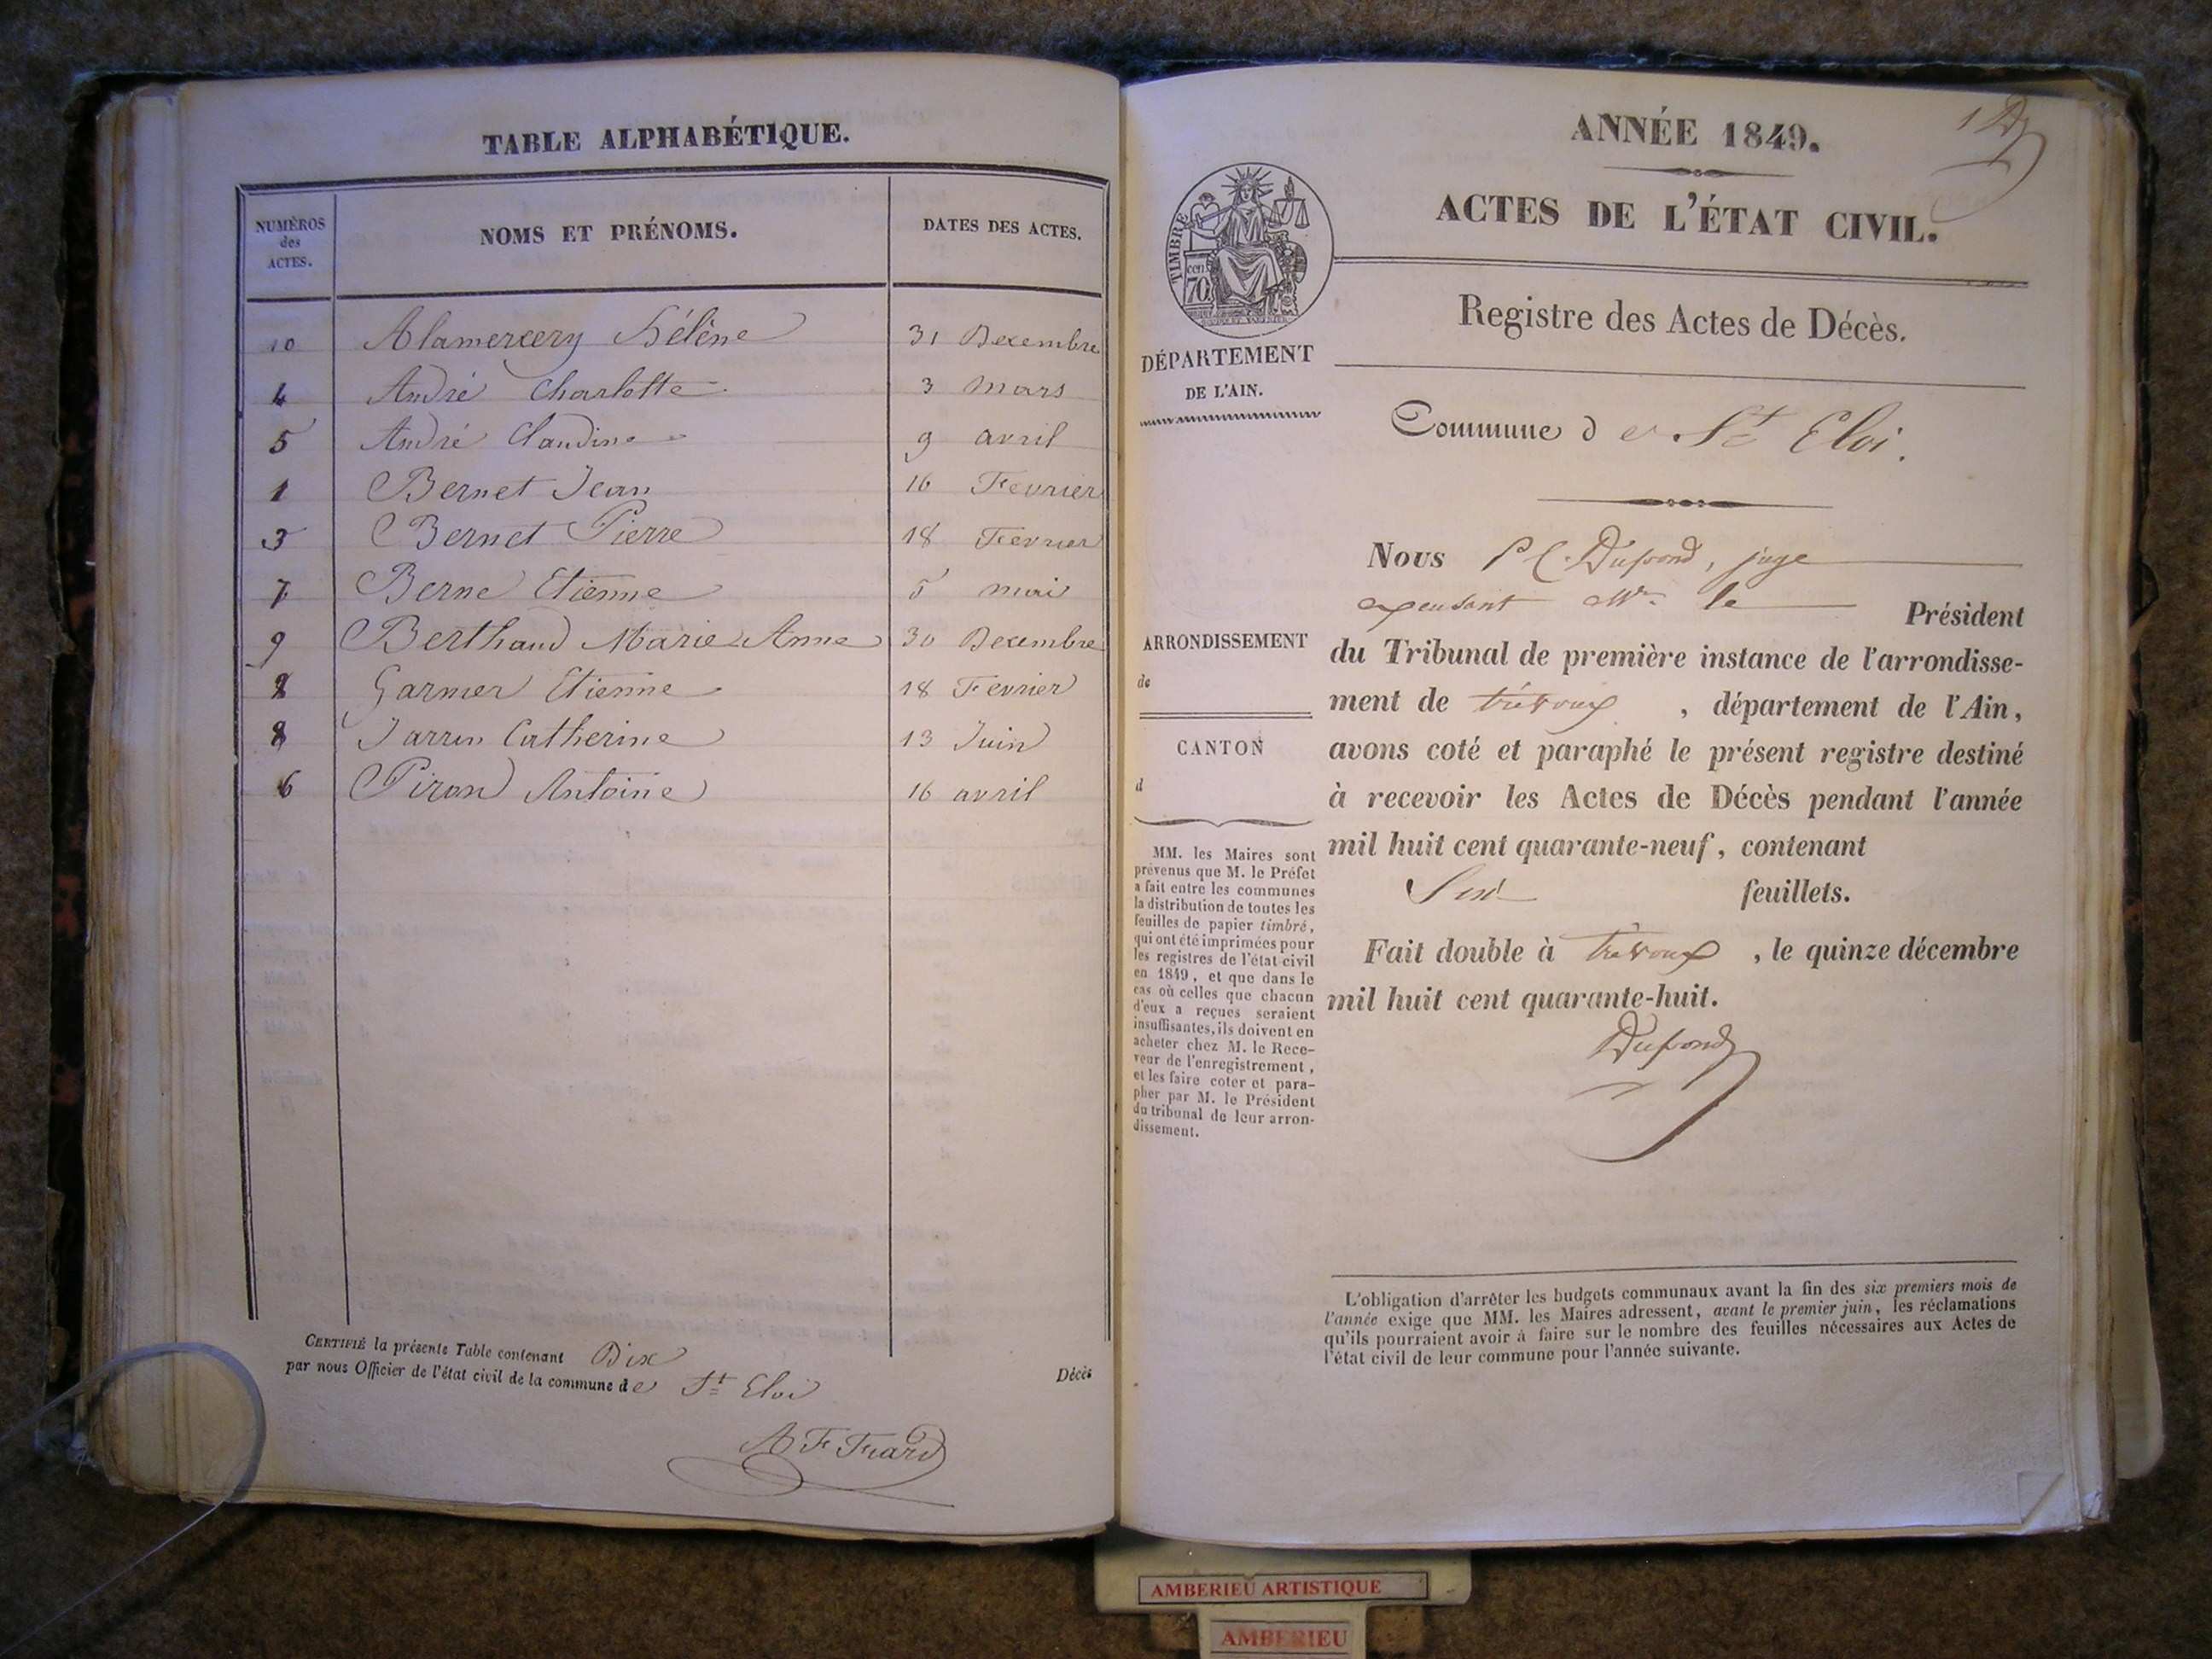 TABLE ALPHABÉTIQUE.
NUMÈROS des ACTES.
NOMS ET PRÉNOMS.
DATES DES ACTES.
10 Alamercery Hélène 31 Decembre
4 André Charlotte 3 Mars
5 André Claudine 9 avril
1 Bernet Jean 16 Fevrier
3 Bernet Pierre 18 Fevrier
7 Berne Etienne 5 mai
9 Berthaud Marie Anne 30 Decembre
2 Garnier Etienne 18 Fevrier
8 Jarrin Catherine 13 Juin
6 Piron Antoine 16 avril
CERTIFIÉ la présente Table contenant Dix
Décès
par nous Officier de l'état civil de la commune de St Eloi
ANNÉE 1849.
ACTES DE L'ÉTAT CIVIL.
TIMBRE
70 cen
DÉPARTEMENT
DE L'AIN.
Registre des Actes de Décès.
Commune de St Eloi.
ARRONDISSEMENT
de
CANTON
d
MM. les Maires sont
prévenus que M. le Préfet
a fait entre les communes
la distribution de toutes les
feuilles de papier timbré,
qui ont été imprimées pour
les registres de l'état civil
en 1849, et que dans le
cas où celles que chacun
d'eux a reçues seraient
insuffisantes, ils doivent en
acheter chez M. le Rece-
veur de l'enregistrement,
et les faire coter et para-
pher par M. le Président
du tribunal de leur arron-
dissement.
Nous juge
Mr le Président
du Tribunal de première instance de l'arrondisse-
ment de trévoux, département de l'Ain,
avons coté et paraphé le présent registre destiné
à recevoir les Actes de Décès pendant l'année
mil huit cent quarante-neuf, contenant
Six feuillets.
Fait double à trévoux, le quinze décembre
mil huit cent quarante-huit.
L'obligation d'arrêter les budgets communaux avant la fin des six premiers mois de
l'année exige que MM. les Maires adressent, avant le premier juin, les réclamations
qu'ils pourraient avoir à faire sur le nombre des feuilles nécessaires aux Actes de
l'état civil de leur commune pour l'année suivante.
AMBERIEU ARTISTIQUE
AMBERIEU